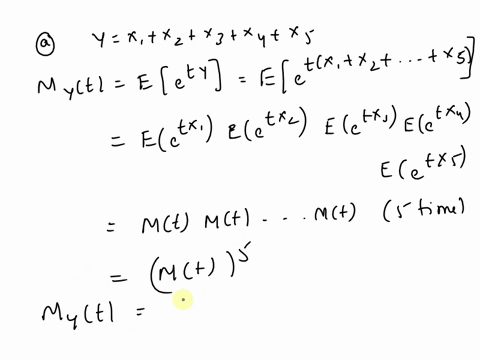 ⓐ Y = x₁ + x₂ + x₃ + x₄ + x₅
M_Y(t) = E[e^{tY}] = E[e^{t(x₁ + x₂ + ... + x₅)}]
= E(e^{tx₁}) E(e^{tx₂}) E(e^{tx₃}) E(e^{tx₄})
E(e^{tx₅})
= M(t) M(t) - - - M(t) (5 time)
= (M(t))⁵
M_Y(t) =